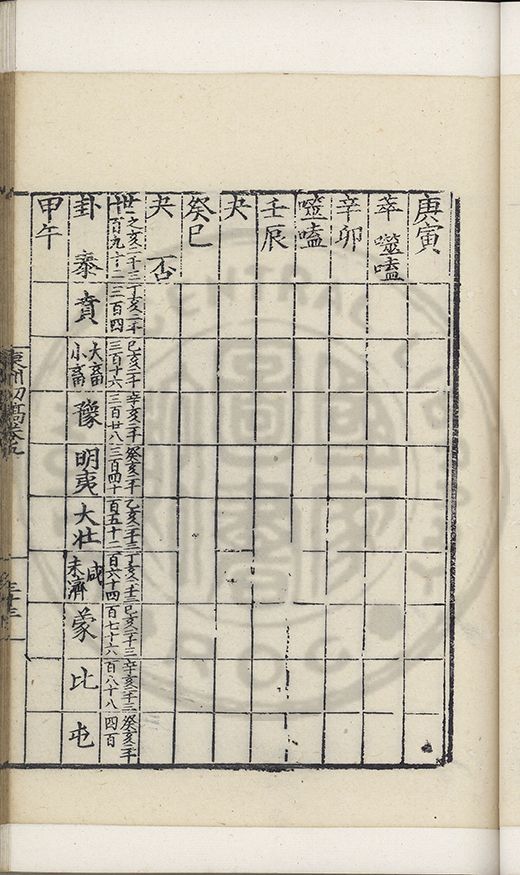 庚寅
萃 噬嗑
辛卯
噬嗑
壬辰
夬
癸巳
夬 否
世 乙亥二千二百九十二 丁亥二千三百四 己亥二千三百十六 辛亥二千三百廿八 癸亥二千三百四十 乙亥二千三百五十二 丁亥二千三百六十四 己亥二千三百七十六 辛亥二千三百八十八 癸亥二千四百
卦 泰 賁 大畜 小畜 豫 明夷 大壯 咸 未濟 蒙 比 屯
甲午
東州初稿卷五